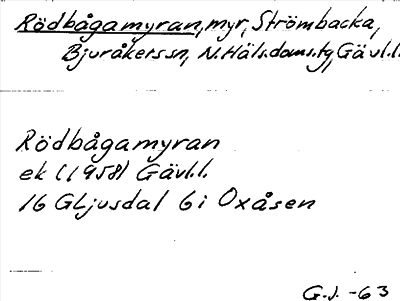 Rödbågamyran, myr, Strömbacka,
Bjuråkerssn, N.Häls.doms.tg, Gävl.l.
Rödbågamyran
ek (1958) Gävl.l.
16 GLjusdal 6i Oxåsen
G.J. -63